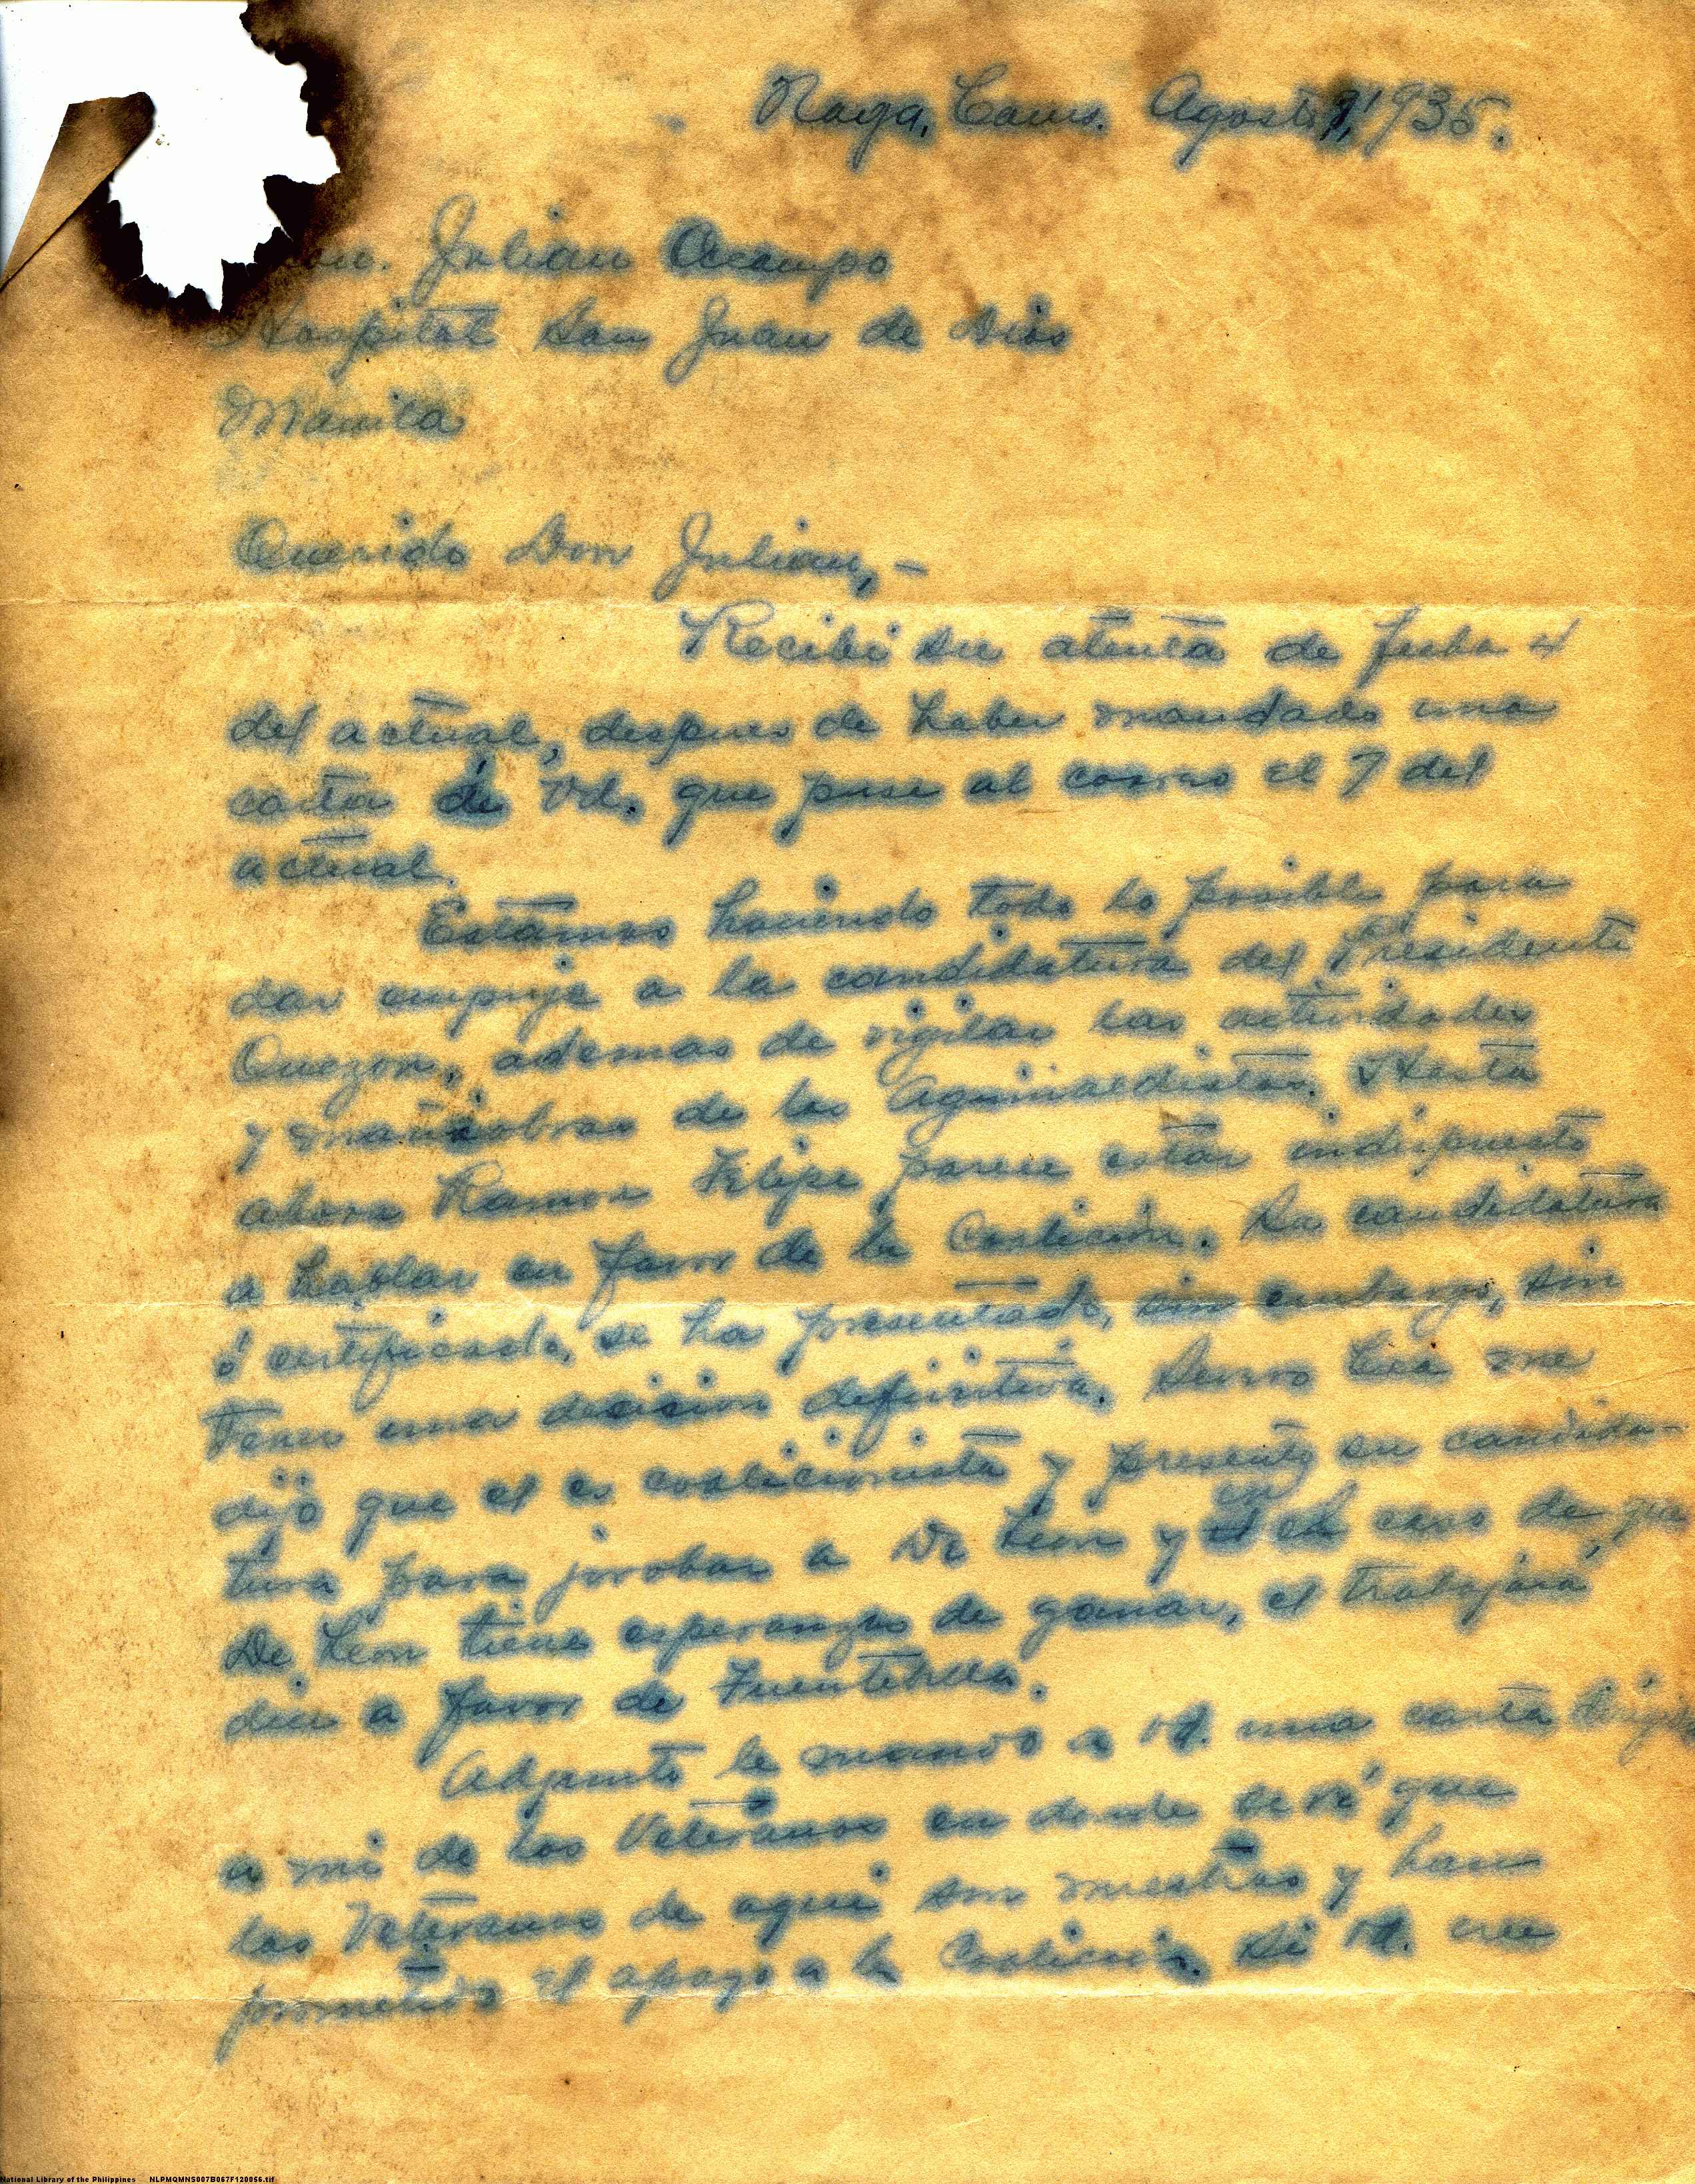 Naga, Cams. Agosto 9, 1935.
Hon. Julian Ocampo
Hospital San Juan de Dios
Manila
Querido Don Julian,-
Recibí su atenta de fecha 4
del actual, despues de haber mandado una
carta á Vd. que puse al correo el 7 del
actual.
Estamos haciendo todo lo posible para
dar empuje a la candidatura del Presidente
Quezon, ademas de vigilar las actividades
y maniobras de los Aguinaldistas. Hasta
ahora Ramon Felipe parece estar indispuesto
a hablar en favor de la Coalicion. Su candidatura
ó certificado, se ha presentado, sin embargo, sin
tener una decision definitiva. Severo Cea me
dijo que el es coalicionista y presentó su candida-
tura para jorobar a De Leon y en el caso de que
De Leon tiene esperanzas de ganar, el trabajará
dice a favor de Fuentebella.
Adjunto le mando a Vd. una carta dirigida
a mi de los Veteranos en donde se vé que
los Veteranos de aqui son nuestros y han
prometido el apoyo a la Coalicion. Si Vd. cree
National Library of the Philippines NLPMQMNS007B067F120056.tif